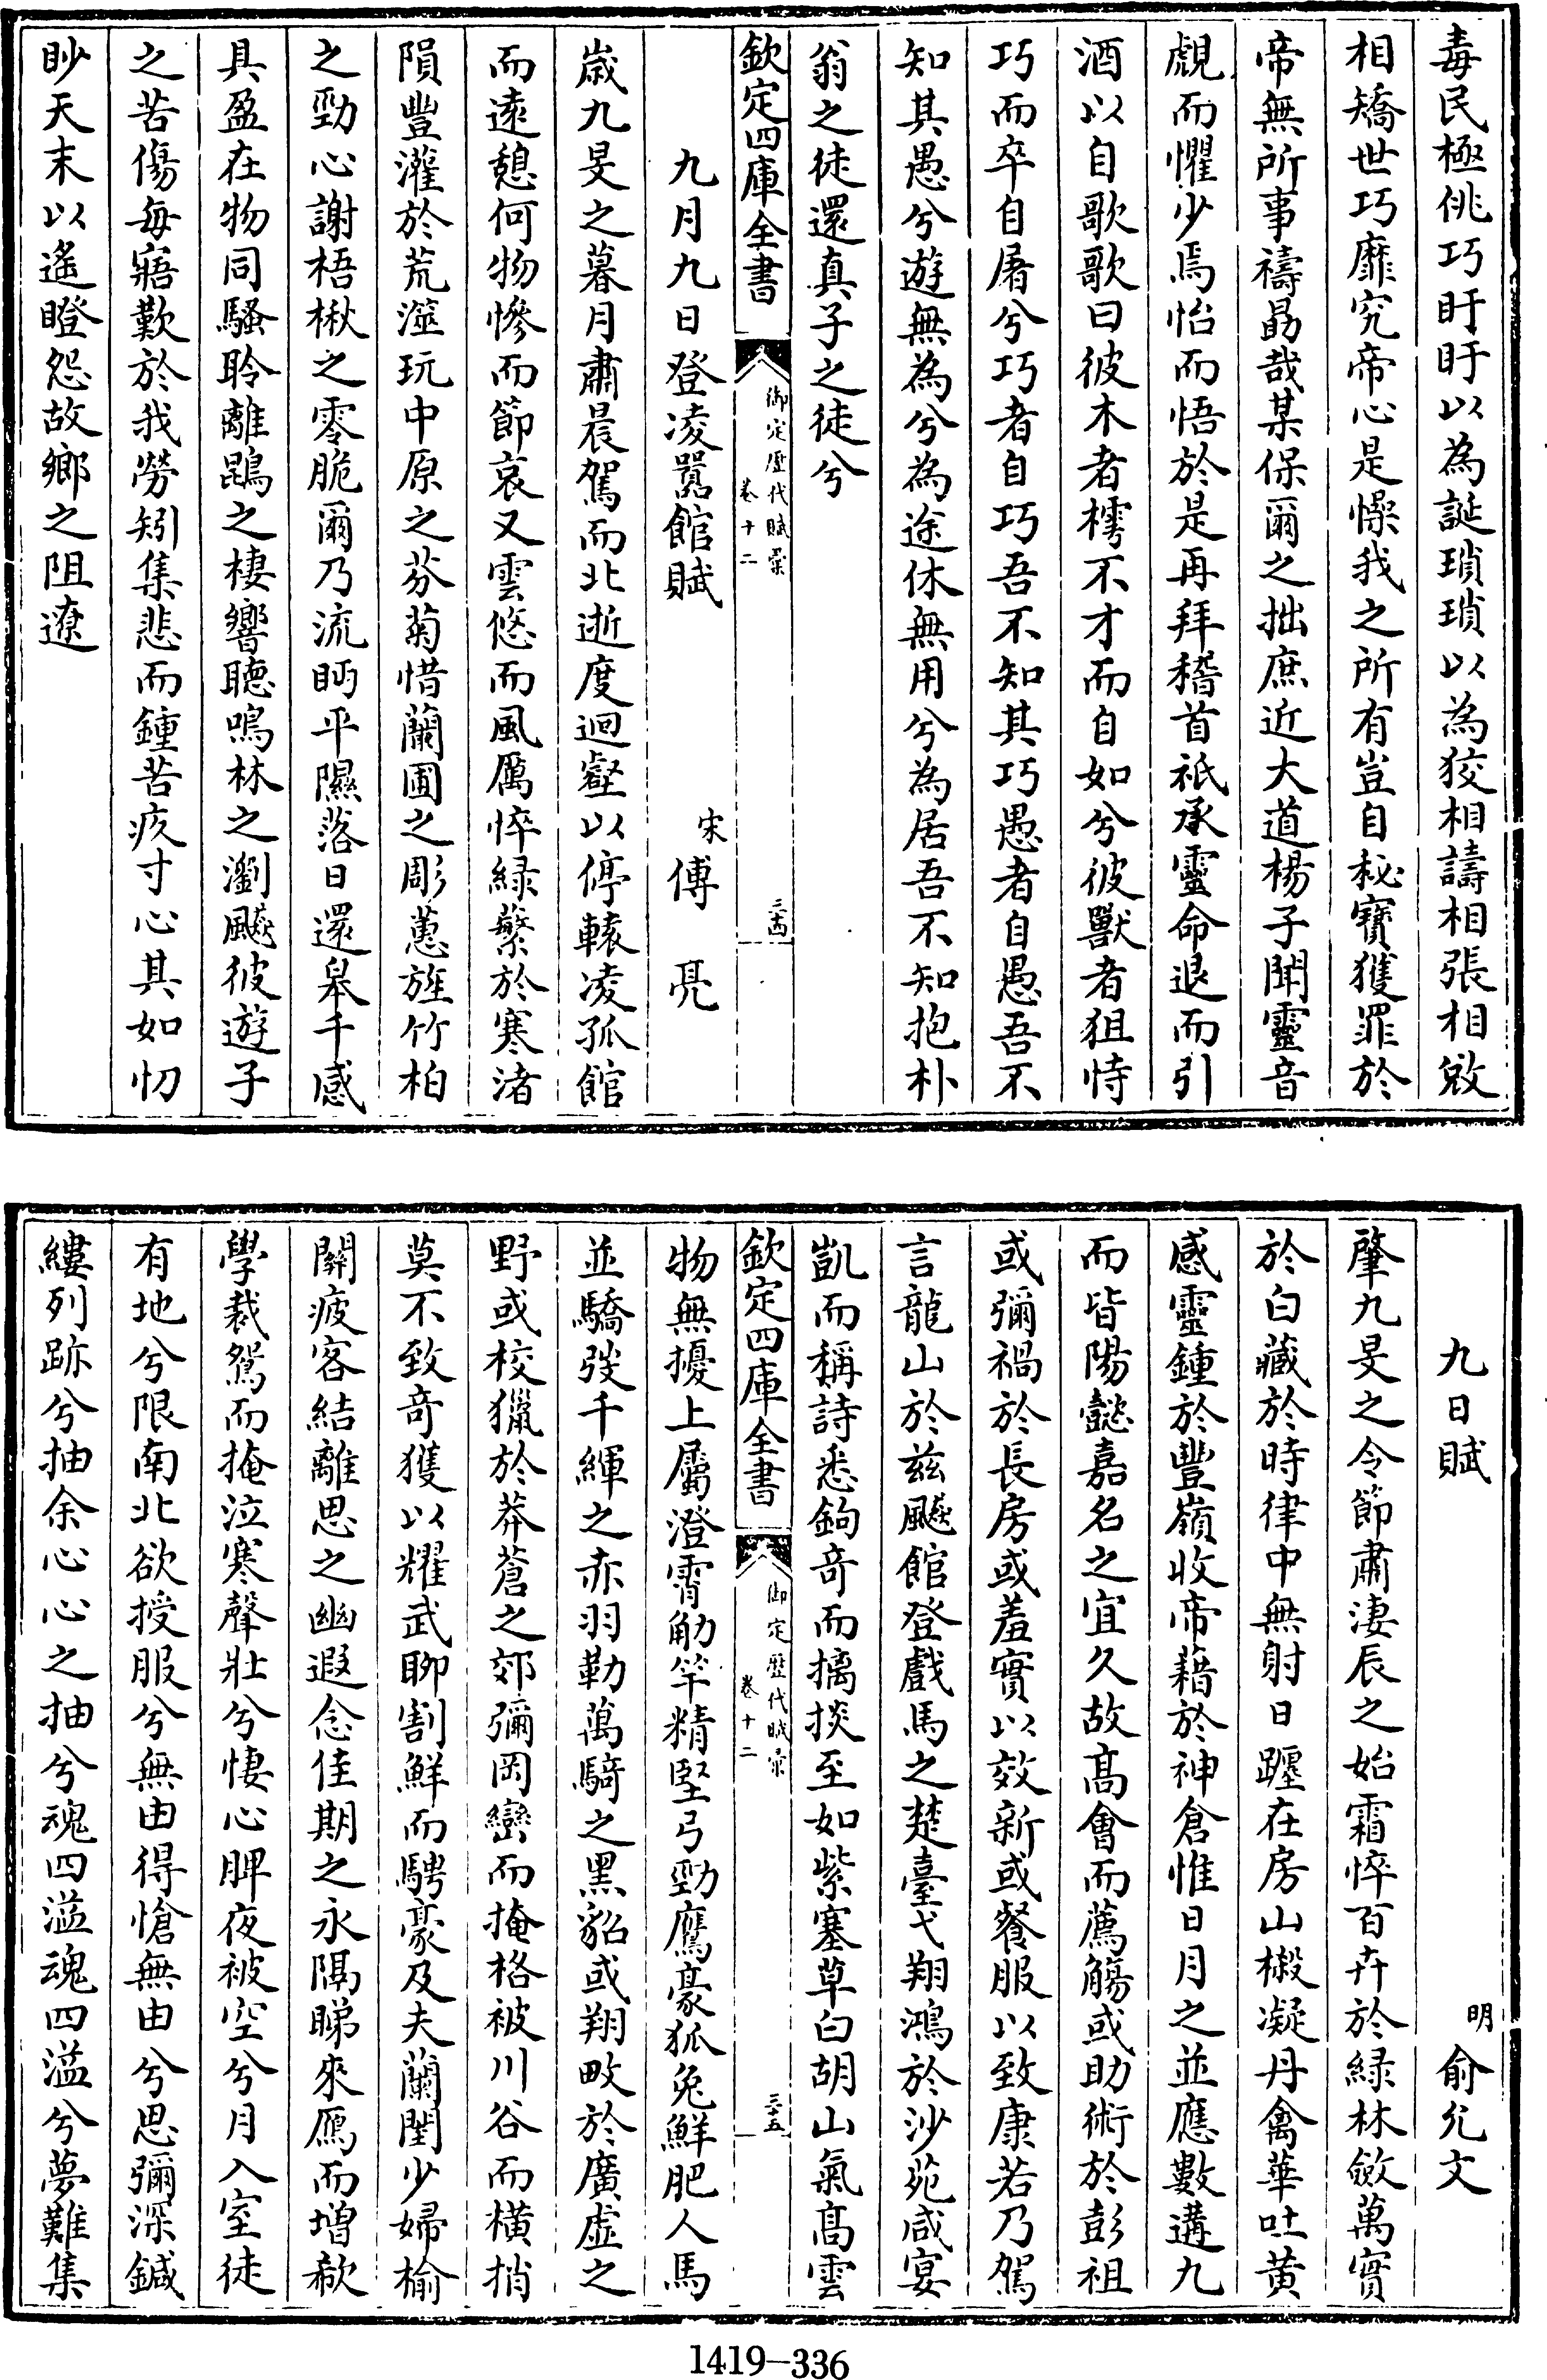 毒民極佻巧盱盱以為誕瑣瑣以為狡相譸相張相敓
相矯世巧靡究帝心是懆我之所有豈自秘寳獲罪於
帝無所事禱勗哉某保爾之拙庶近大道楊子聞靈音
覷而懼少焉怡而悟於是再拜稽首祇承靈命退而引
酒以自歌歌曰彼木者樗不才而自如兮彼獸者狙恃
巧而卒自屠兮巧者自巧吾不知其巧愚者自愚吾不
知其愚兮遊無為兮為途休無用兮為居吾不知抱朴
翁之徒還真子之徒兮
欽定四庫全書
御定歴代賦彚
卷十二
三十四
九月九日登凌嚣館賦
宋傅亮
歳九旻之暮月肅晨駕而北逝度迴壑以停轅凌孤館
而逺憩何物惨而節哀又雲悠而風厲悴緑蘩於寒渚
隕豐灌於荒澨玩中原之芬菊惜蘭圃之彫蕙旌竹柏
之勁心謝梧楸之零脆爾乃流眄平隰落日還皋千感
具盈在物同騷聆離鵾之棲響聴鳴林之瀏飈彼遊子
之苦傷每寤歎於我勞矧集悲而鍾苦疚寸心其如忉
眇天末以遙瞪怨故鄉之阻遼
九日賦
明俞允文
肇九旻之令節肅淒辰之始霜悴百卉於緑林斂萬實
於白藏於時律中無射日躔在房山樧凝丹禽華吐黄
感靈鍾於豐嶺收帝藉於神倉惟日月之並應數遘九
而皆陽懿嘉名之宜久故髙會而薦觴或助術於彭祖
或彌禍於長房或羞實以效新或餐服以致康若乃駕
言龍山於兹飈館登戲馬之楚臺弋翔鴻於沙苑咸宴
凱而稱詩悉鉤竒而摛掞至如紫塞草白胡山氣髙雲
欽定四庫全書
御定歴代賦彚
卷十二
三十五
物無擾上屬澄霄觔竿精堅弓勁鷹豪狐兔鮮肥人馬
並驕彂千緷之赤羽勒萬騎之黒貂或翔畋於廣虚之
野或校獵於莽蒼之郊彌岡巒而掩格被川谷而横捎
莫不致竒獲以耀武聊割鮮而騁豪及夫蘭閨少婦榆
關疲客結離思之幽遐念佳期之永隔睇來鴈而增欷
學裁鴛而掩泣寒聲壯兮悽心脾夜被空兮月入室徒
有地兮限南北欲授服兮無由得愴無由兮思彌深鍼
縷列跡兮抽余心心之抽兮魂四溢魂四溢兮夢難集
1419-336